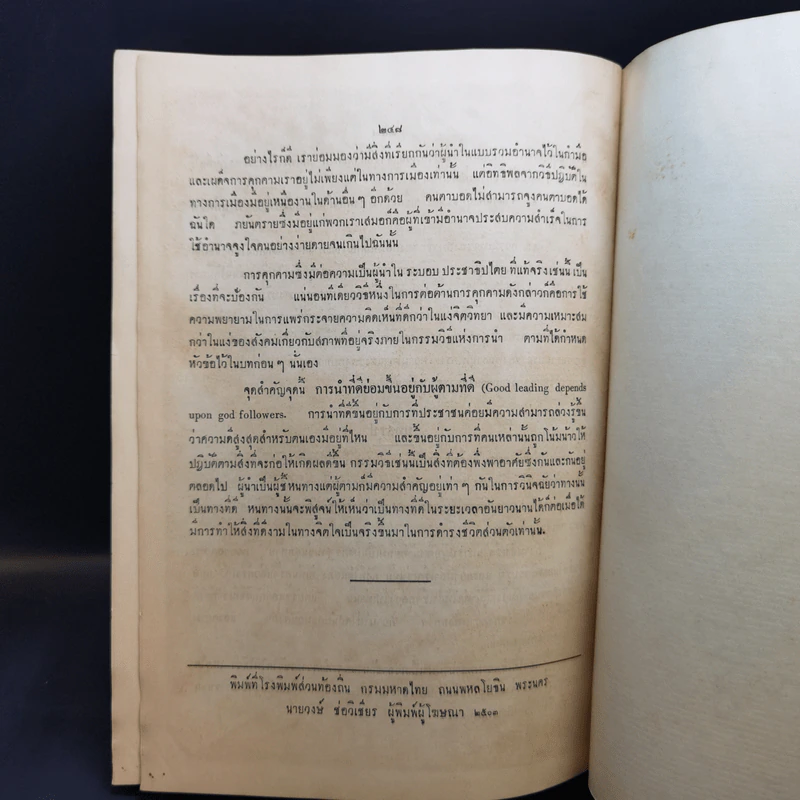 ๒๔๘
อย่างไรก็ดี เราย่อมมองว่ามีสิ่งที่เรียกกันว่าผู้นำในแบบรวมอำนาจไว้ในกำมือ
และเผด็จการคุกคามเราอยู่ไม่เพียงแต่ในทางการเมืองเท่านั้น แต่อิทธิพลจากวิธีปฏิบัติใน
ทางการเมืองมีอยู่เหนืองานในด้านอื่น ๆ อีกด้วย คนตาบอดไม่สามารถจูงคนตาบอดได้
ฉันใด ภยันตรายซึ่งมีอยู่แก่พวกเราเสมอก็คือผู้ที่เข้ามีอำนาจประสบความสำเร็จในการ
ใช้อำนาจจูงใจคนอย่างง่ายดายจนเกินไปฉันนั้น
การคุกคามซึ่งมีต่อความเป็นผู้นำใน ระบอบ ประชาธิปไตย ที่แท้จริงเช่นนี้ เป็น
เรื่องที่จะป้องกัน แน่นอนทีเดียววิธีหนึ่งในการต่อต้านการคุกคามดังกล่าวก็คือการใช้
ความพยายามในการแพร่กระจายความคิดเห็นที่ดีกว่าในแง่จิตวิทยา และมีความเหมาะสม
กว่าในแง่ของสังคมเกี่ยวกับสภาพที่อยู่จริงภายในกรรมวิธีแห่งการนำ ตามที่ได้กำหนด
หัวข้อไว้ในบทก่อน ๆ นั้นเอง
จุดสำคัญจุดนี้ การนำที่ดีย่อมขึ้นอยู่กับผู้ตามที่ดี (Good leading depends
upon god followers. การนำที่ดีขึ้นอยู่กับการที่ประชาชนค่อยมีความสามารถล่วงรู้ขึ้น
ว่าความดีสูงสุดสำหรับตนเองมีอยู่ที่ไหน และขึ้นอยู่กับการที่คนเหล่านั้นถูกโน้มน้าวให้
ปฏิบัติตามสิ่งที่จะก่อให้เกิดผลดีขึ้น กรรมวิธีเช่นนี้เป็นสิ่งที่ต้องพึ่งพาอาศัยซึ่งกันและกันอยู่
ตลอดไป ผู้นำเป็นผู้ชี้หนทางแต่ผู้ตามก็มีความสำคัญอยู่เท่า ๆ กันในการวินิจฉัยว่าทางนั้น
เป็นทางที่ดี หนทางนั้นจะพิสูจน์ให้เห็นว่าเป็นทางที่ดีในระยะเวลาอันยาวนานได้ก็ต่อเมื่อได้
มีการทำให้สิ่งที่ดีงามในทางจิตใจเป็นจริงขึ้นมาในการดำรงชีวิตส่วนตัวเท่านั้น.
พิมพ์ที่โรงพิมพ์ส่วนท้องถิ่น กรมมหาดไทย ถนนพหลโยธิน พระนคร
นายวงษ์ ช่อวิเชียร ผู้พิมพ์ผู้โฆษณา ๒๕๐๓